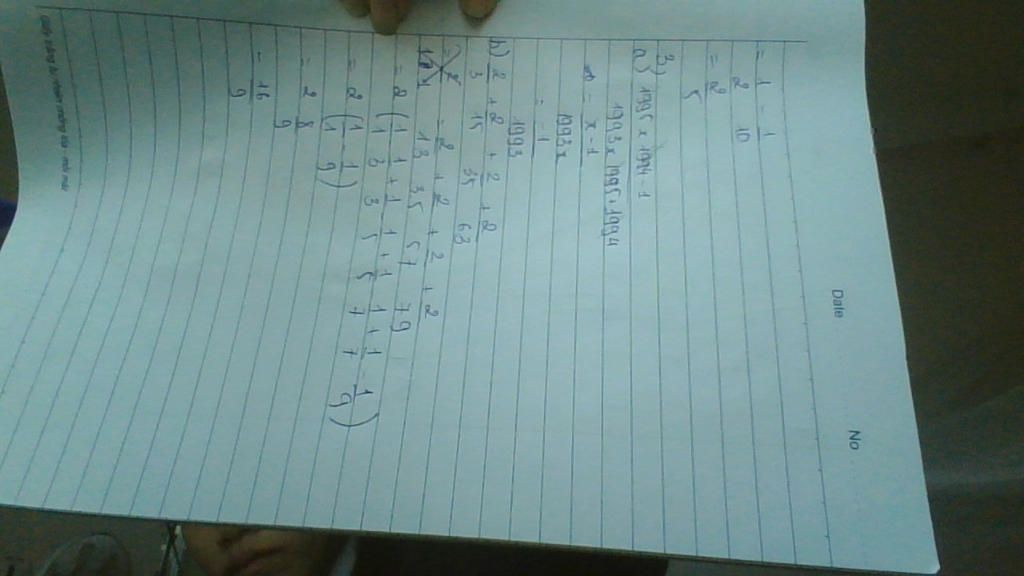 Date No
= 1/2 - 1/10
= 2/5
3)
a) 1995 x 1994 - 1
1993 x 1995 + 1994
= x - 1
1993 x
= - 1
1993
b) 2/3 + 2/15 + 2/35 + 2/63
= 2/13 + 2/35 + 2/57 + 2/79
= 2 ( 1/1 1/3 + 1/3 1/5 + 1/5 1/7 + 1/7 1/9 )
= 2 ( 1/1 - 1/9 )
= 2 8/9
= 16/9